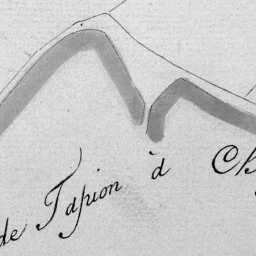 de Tapion à Ch